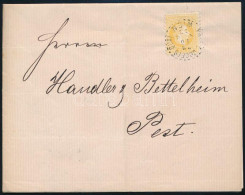 Herren
Handler & Bettelheim
Pest.